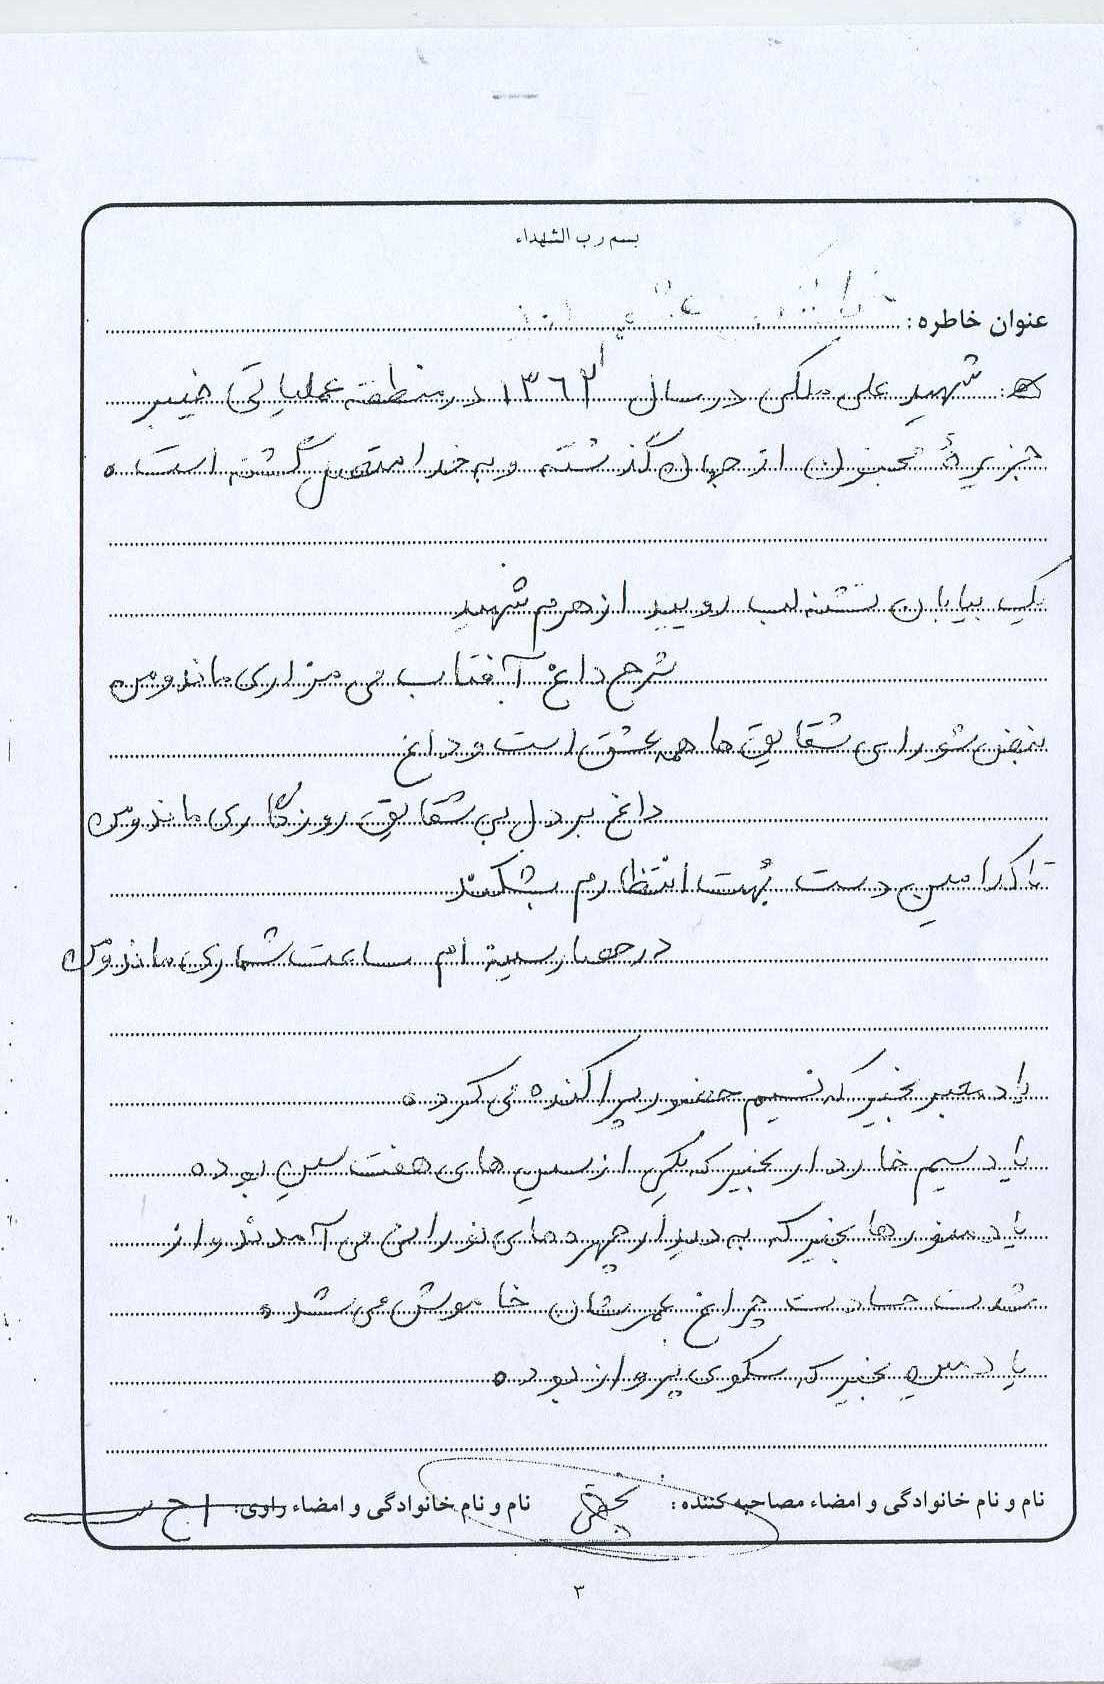 بسم رب الشهداء
عنوان خاطره :
شهید علی ملکی در سال ۱۳۶۲ در منطقه عملیاتی خیبر
جزیرهٔ مجنون از جهان گذشته و به خدا متصل گشته است.
یک بیابان تشنه لب رویید از هرم شهید
شرح داغ آفتاب بی مزاری ماند و من
نبض شورای شقایق ها همه عشق است و داغ
داغ بر دل بی شقایق روزگاری ماند و من
تا کدامین دست بُهت انتظارم بشکند
در حصار سینه ام ساعت شماری ماند و من
یاد معبر بخیر که نسیم حضور پراکنده می کرد.
یاد سیم خاردار بخیر که یکی از سین های هفت سین بود.
یاد منورها بخیر که به دیدار چهره های نورانی می آمدند و از
شدت حسادت چراغ عمرشان خاموش می شد.
یاد مین بخیر که سکوی پرواز بود.
نام و نام خانوادگی و امضاء مصاحبه کننده : نام و نام خانوادگی و امضاء راوی:
۳